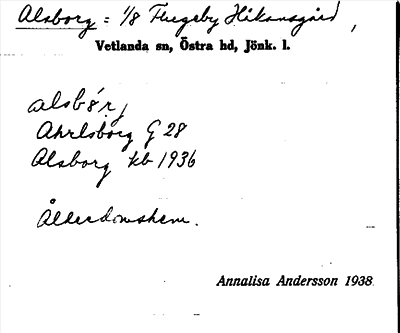 Alsborg = 1/8 Flugeby Håkansgård,
Vetlanda sn, Östra hd, Jönk. l.
alsbór,
Ahrlsborg G 28
Alsborg kb 1936
Ålderdomshem.
Annalisa Andersson 1938